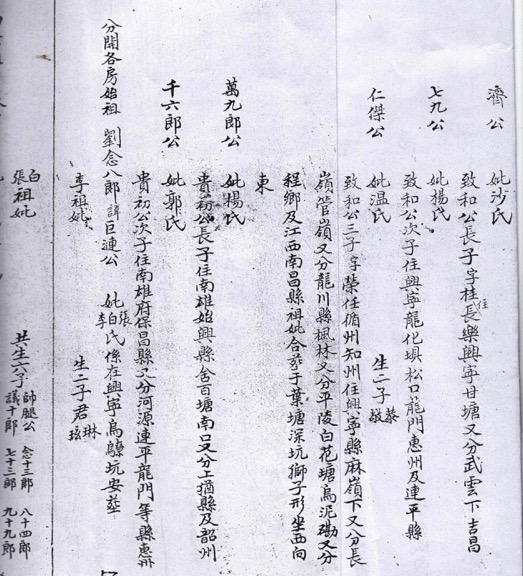 濟公
妣沙氏
致和公長子字桂長住樂興寧甘塘又分武雲下吉昌
七九公
妣楊氏
致和公次子住興寧龍化埧松口龍門惠州及連平縣
仁傑公
妣溫氏 生二子恭敬
致和公三子字榮任循州知州住興寧縣麻嶺下又分長
嶺管嶺又分龍川縣楓林又分平陵白花塘烏泥磡又分
程鄉及江西南昌縣祖妣合塟于葉塘深坑獅子形坐西向
東
萬九郎公
妣楊氏
貴初公長子住南雄始興縣舍百塘南口又分上猶縣及韶州
千六郎公
妣郭氏
貴初公次子住南雄府保昌縣又分河源連平龍門等縣惠州
分開各房始祖 劉念八郎 諱巨連公 妣張李白氏係在興寧烏鱶坑安塟
李祖妣 生二子君琳玹
白張祖妣 共生六子帥腿公 念十三郎 八十四郎
議十郎 七十三郎 九十九郎